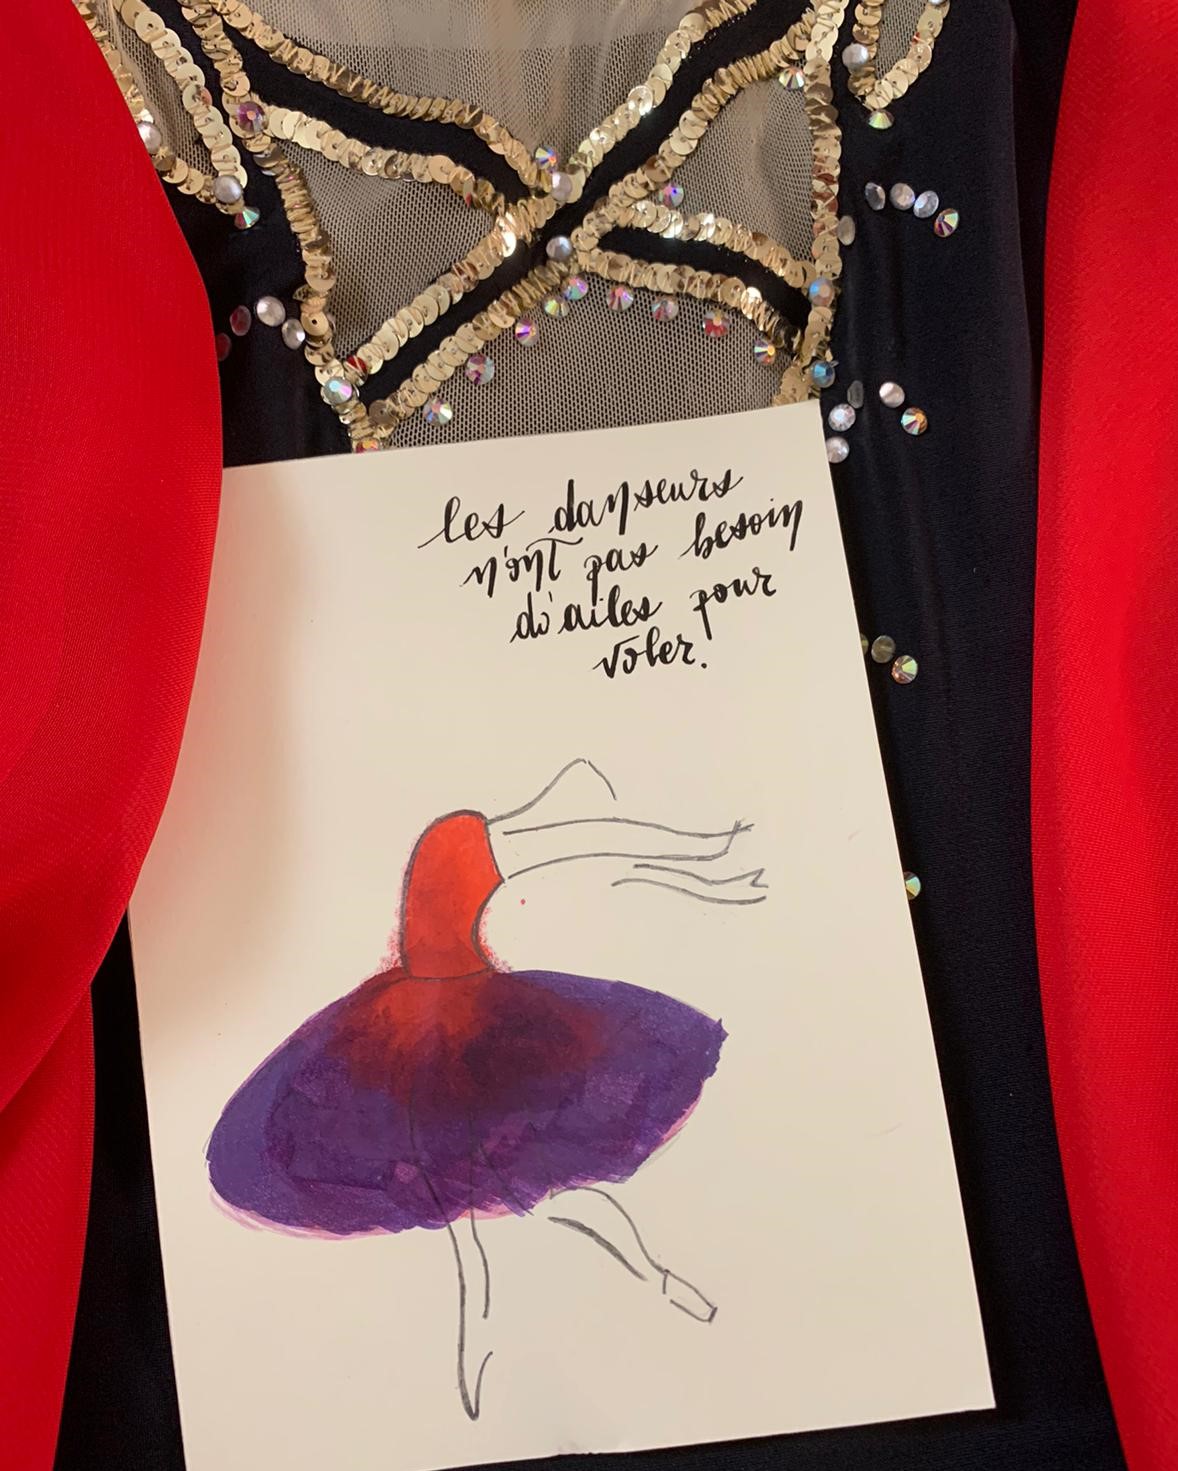 les danseurs
n'ont pas besoin
d'ailes pour
voler.